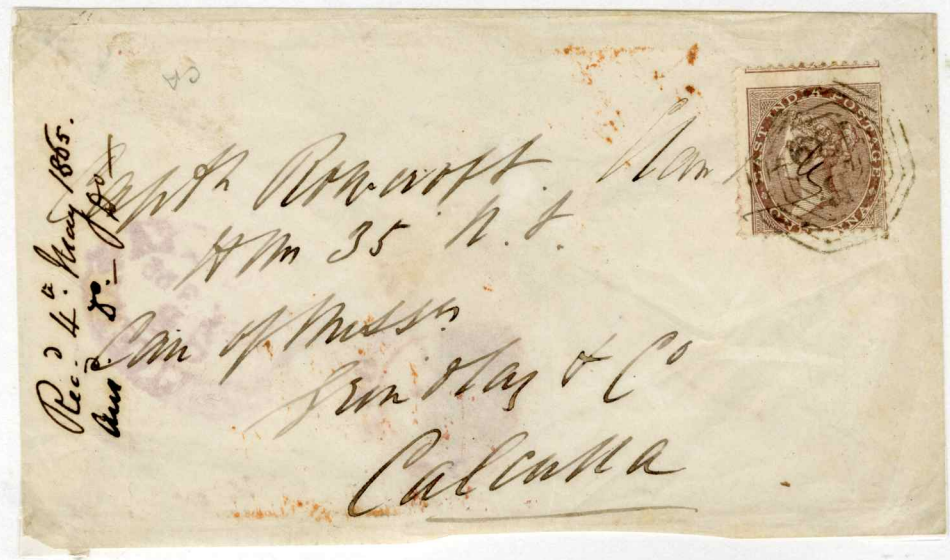 Rec.d 4th May 1865.
Ans.d do.
Captn Rowcroft
HM 35 N. I.
Care of Messrs
Grindlay & Co
Calcutta
EAST INDIA POSTAGE
ONE ANNA